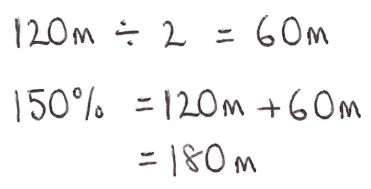 120m ÷ 2 = 60m
150% = 120m + 60m
= 180m